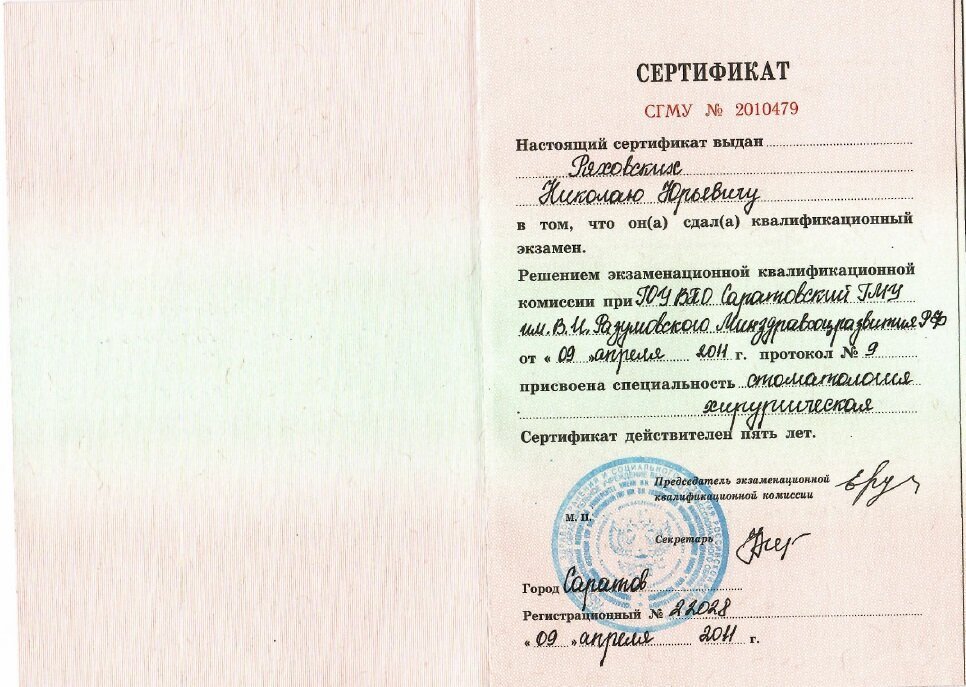 СЕРТИФИКАТ
СГМУ № 2010479
Настоящий сертификат выдан
Ряховских
Николаю Юрьевичу
в том, что он(а) сдал(а) квалификационный
экзамен.
Решением экзаменационной квалификационной
комиссии при ГОУ ВПО Саратовский ГМУ
им. В.И. Разумовского Минздравсоцразвития РФ
от « 09 » апреля 2011 г. протокол № 9
присвоена специальность стоматология
хирургическая
Сертификат действителен пять лет.
Председатель экзаменационной
квалификационной комиссии
М. П.
Секретарь
Город Саратов
Регистрационный № 22028
« 09 » апреля 2011 г.